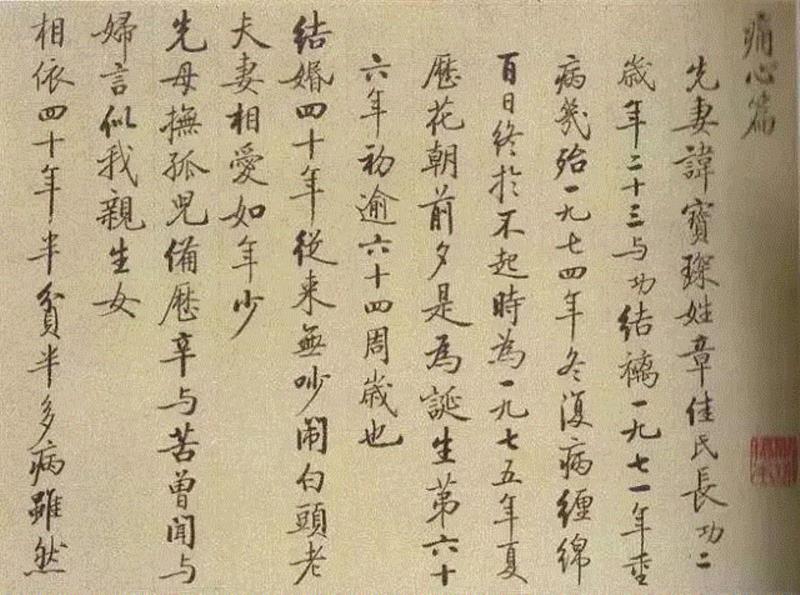 痛心篇
先妻諱寶琛姓章佳氏長功二
歲年二十三与功結褵一九七一年重
病幾殆一九七四年冬復病纏綿
百日終於不起時為一九七五年夏
曆花朝前夕是為誕生第六十
六年初逾六十四周歲也
結婚四十年從來無吵闹白頭老
夫妻相愛如年少
先母撫孤兒備歷辛与苦曾聞与
婦言似我親生女
相依四十年半貧半多病雖然